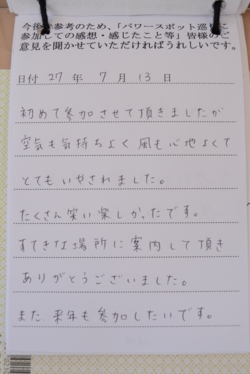 今後の参考のため、「パワースポット巡りに
参加しての感想・感じたこと等」皆様のご
意見を聞かせていただければうれしいです。
日付 27 年 7 月 13 日
初めて参加させて頂きましたが
空気も気持ちよく風も心地よくて
とてもいやされました。
たくさん笑い楽しかったです。
すてきな場所に案内して頂き
ありがとうございました。
また来年も参加したいです。